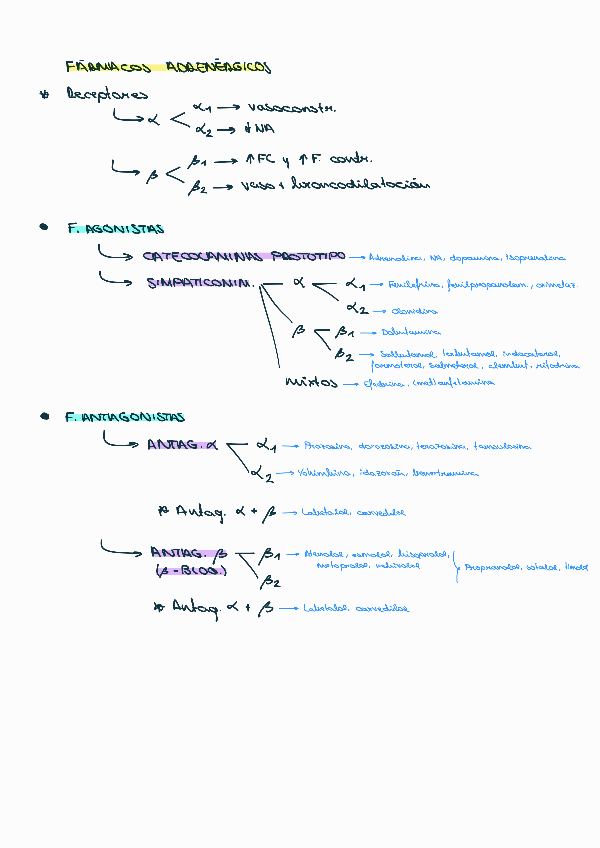 FÁRMACOS ADRENÉRGICOS
* Receptores
α
α1 → vasoconstr.
α2 → ↓ NA
β
β1 → ↑ FC y ↑ F. contr.
β2 → vaso + broncodilatación
• F. AGONISTAS
CATECOLAMINAS PROTOTIPO → Adrenalina, NA, dopamina, Isoprenalina
SIMPATICOMIM.
α
α1 → Fenilefrina, fenilpropanolam., oximetaz.
α2 → Clonidina
β
β1 → Dobutamina
β2 → Salbutamol, terbutamol, indacaterol,
formoterol, salmeterol, clembut., ritodrina
mixtos → Efedrina, (met)anfetamina
• F. ANTAGONISTAS
ANTAG. α
α1 → Prazosina, doxazosina, terazosina, tamsulosina
α2 → Yohimbina, idazoxán,
* Antag. α + β → Labetalol, carvedilol
ANTAG. β
(β-BLOQ.)
β1 → Atenolol, esmolol, bisoprolol,
metoprolol, nebivolol
β2
Propranolol, sotalol, timolol
* Antag. α + β → Labetalol, carvedilol